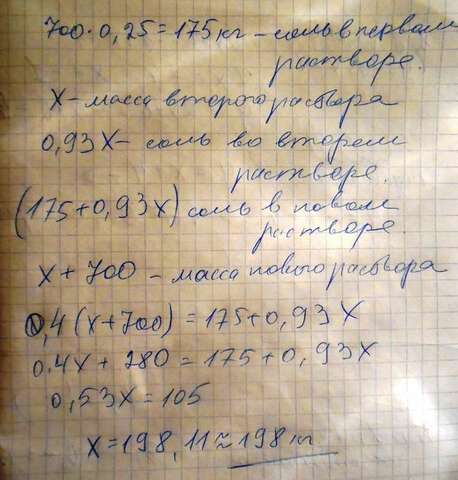 700·0,25=175кг – соль в первом
растворе.
X – масса второго раствора
0,93X – соль во втором
растворе.
(175+0,93X) соль в новом
растворе.
X + 700 – масса нового раствора
0,4(X+700) = 175+0,93X
0.4X + 280 = 175+0,93X
0,53X = 105
X = 198,11 ≈ 198 кг